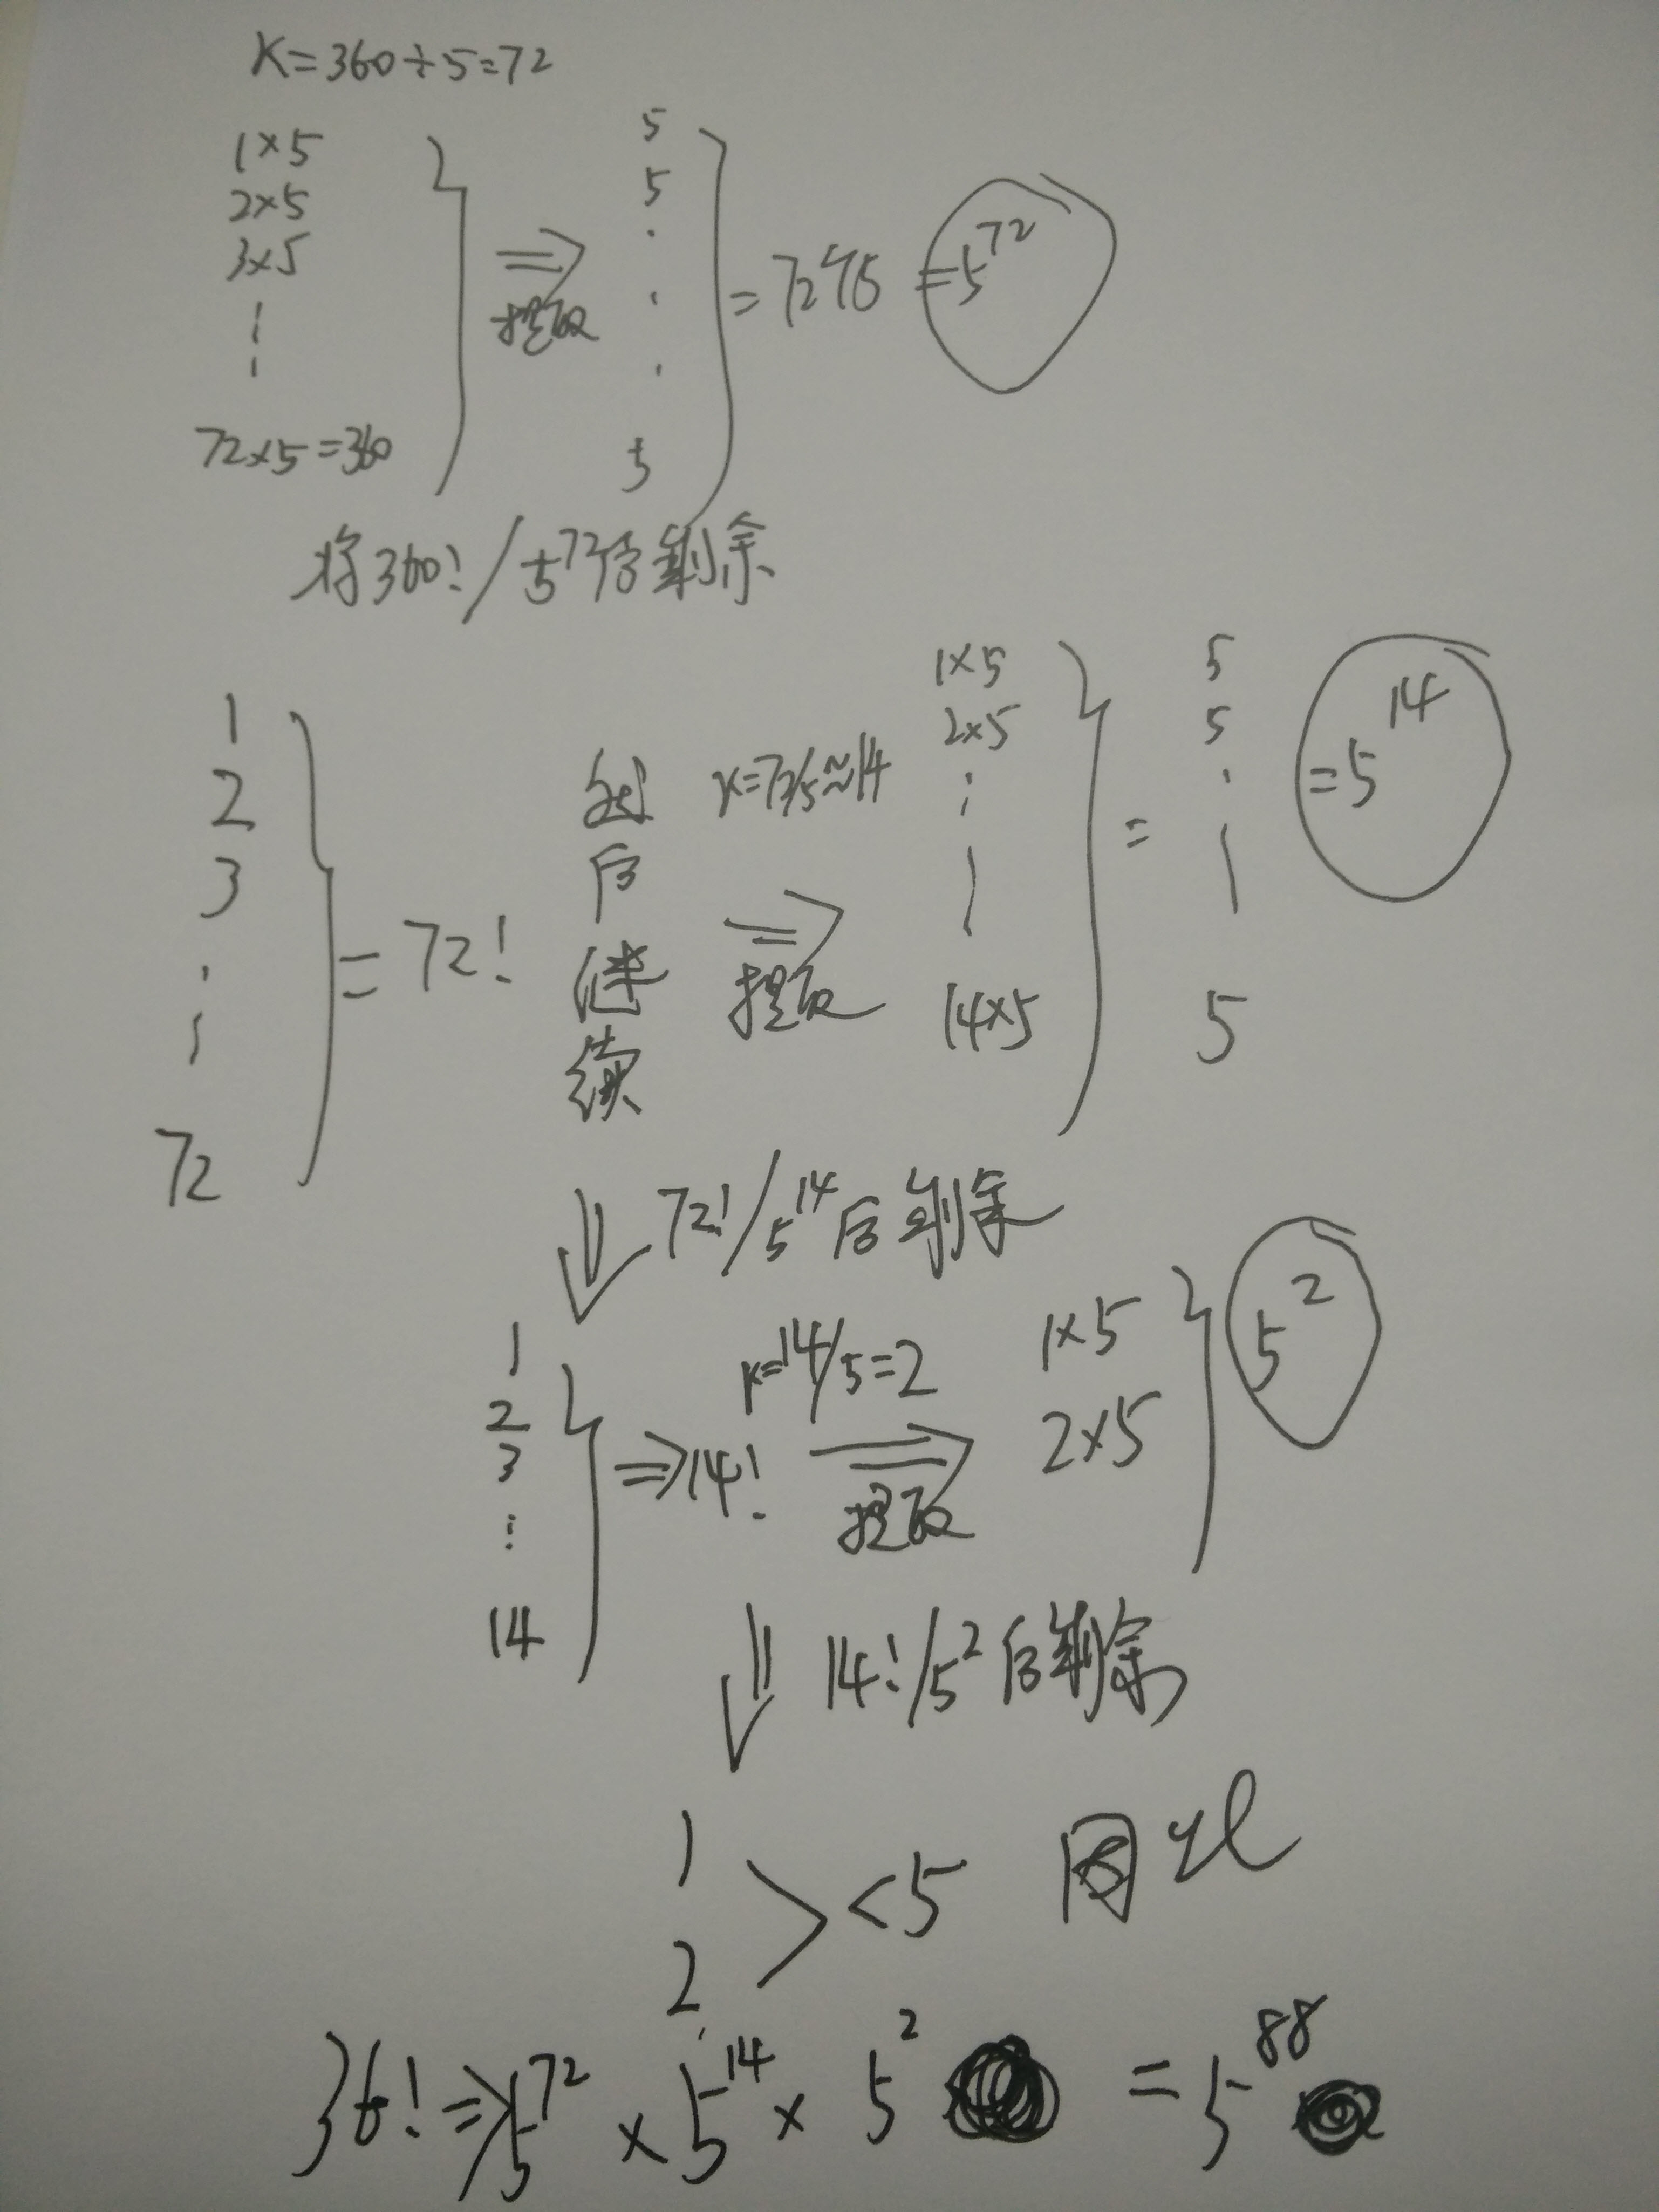 K=360÷5=72
1×5
2×5
3×5
72×5=360
提取
5
5
5
=72个5
=5^72
将360!/5^72后剩余
1
2
3
72
=72!
然后继续
K=72/5≈14
提取
1×5
2×5
14×5
=
5
5
5
=5^14
72!/5^14后剩余
1
2
3
14
⇒14!
K=14/5=2
提取
1×5
2×5
5^2
14!/5^2后剩余
1
2
<5 因此
36!⇒5^72×5^14×5^2=5^88